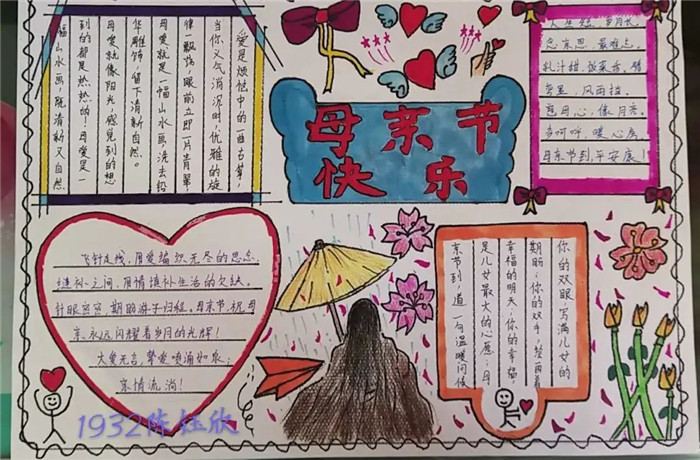 母亲节
快乐
爱是烦恼中的一曲古筝，
当你义气消沉时，优雅的旋
律一飘荡，眼前立即一片青翠，
母爱就是一幅山水画，洗去铅
华雕饰，留下清新自然。
母爱就像阳光，感觉到的想
到的都是热热的！母爱是一
幅山水画，脱清新又自然
人生短，岁月长，
恩东思，最难忘。
乳汁甜，饭菜香，
窝里，风雨挡。
慈母心，像月亮，
多呵呼，暖心房，
母亲节到，平安康！
飞针走线，用爱编织无尽的思念，
缝补之间，用情填补生活的欠缺。
针眼密密，期盼游子归程。母亲节，祝母
亲，永远闪耀着岁月的光辉！
大爱无言，挚爱喷涌如泉；
亲情流淌！
你的双眼，写满儿女的
期盼，你的双手，
幸福的明天；你的幸福，
是儿女最大的心愿；母
亲节到，道一句温暖问候
1932陈钰欣